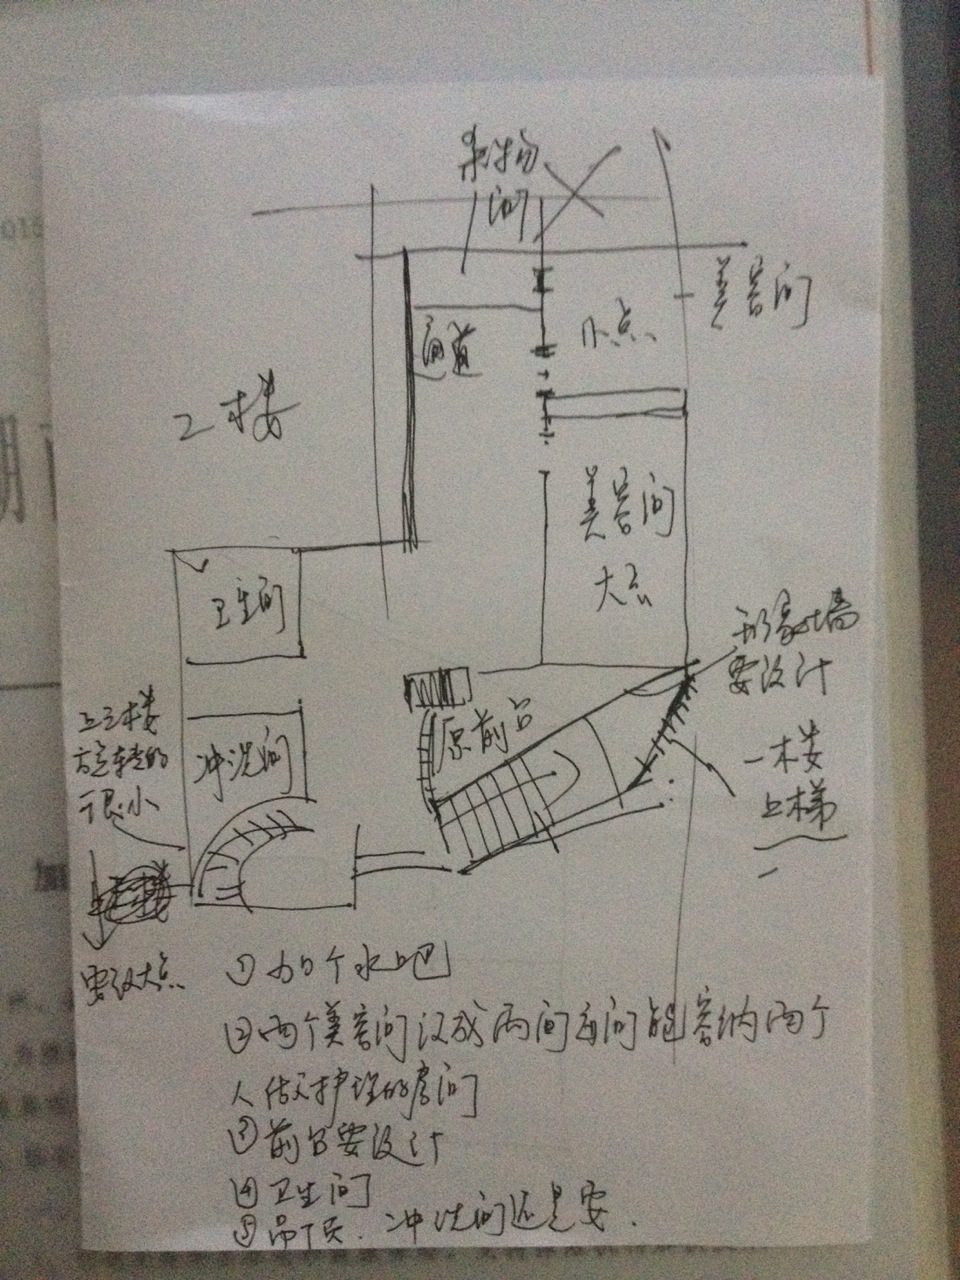 杂物
间
美容间
小点
通道
2楼
美容间
大点
卫生间
形象墙
要设计
原前台
冲洗间
上三楼
很小
一楼
上梯
要设大点
①加个水吧
②两个美容间设成两间每间能容纳两个
人做护理的房间
③前台要设计
④卫生间
⑤吊顶.冲洗间还是要.